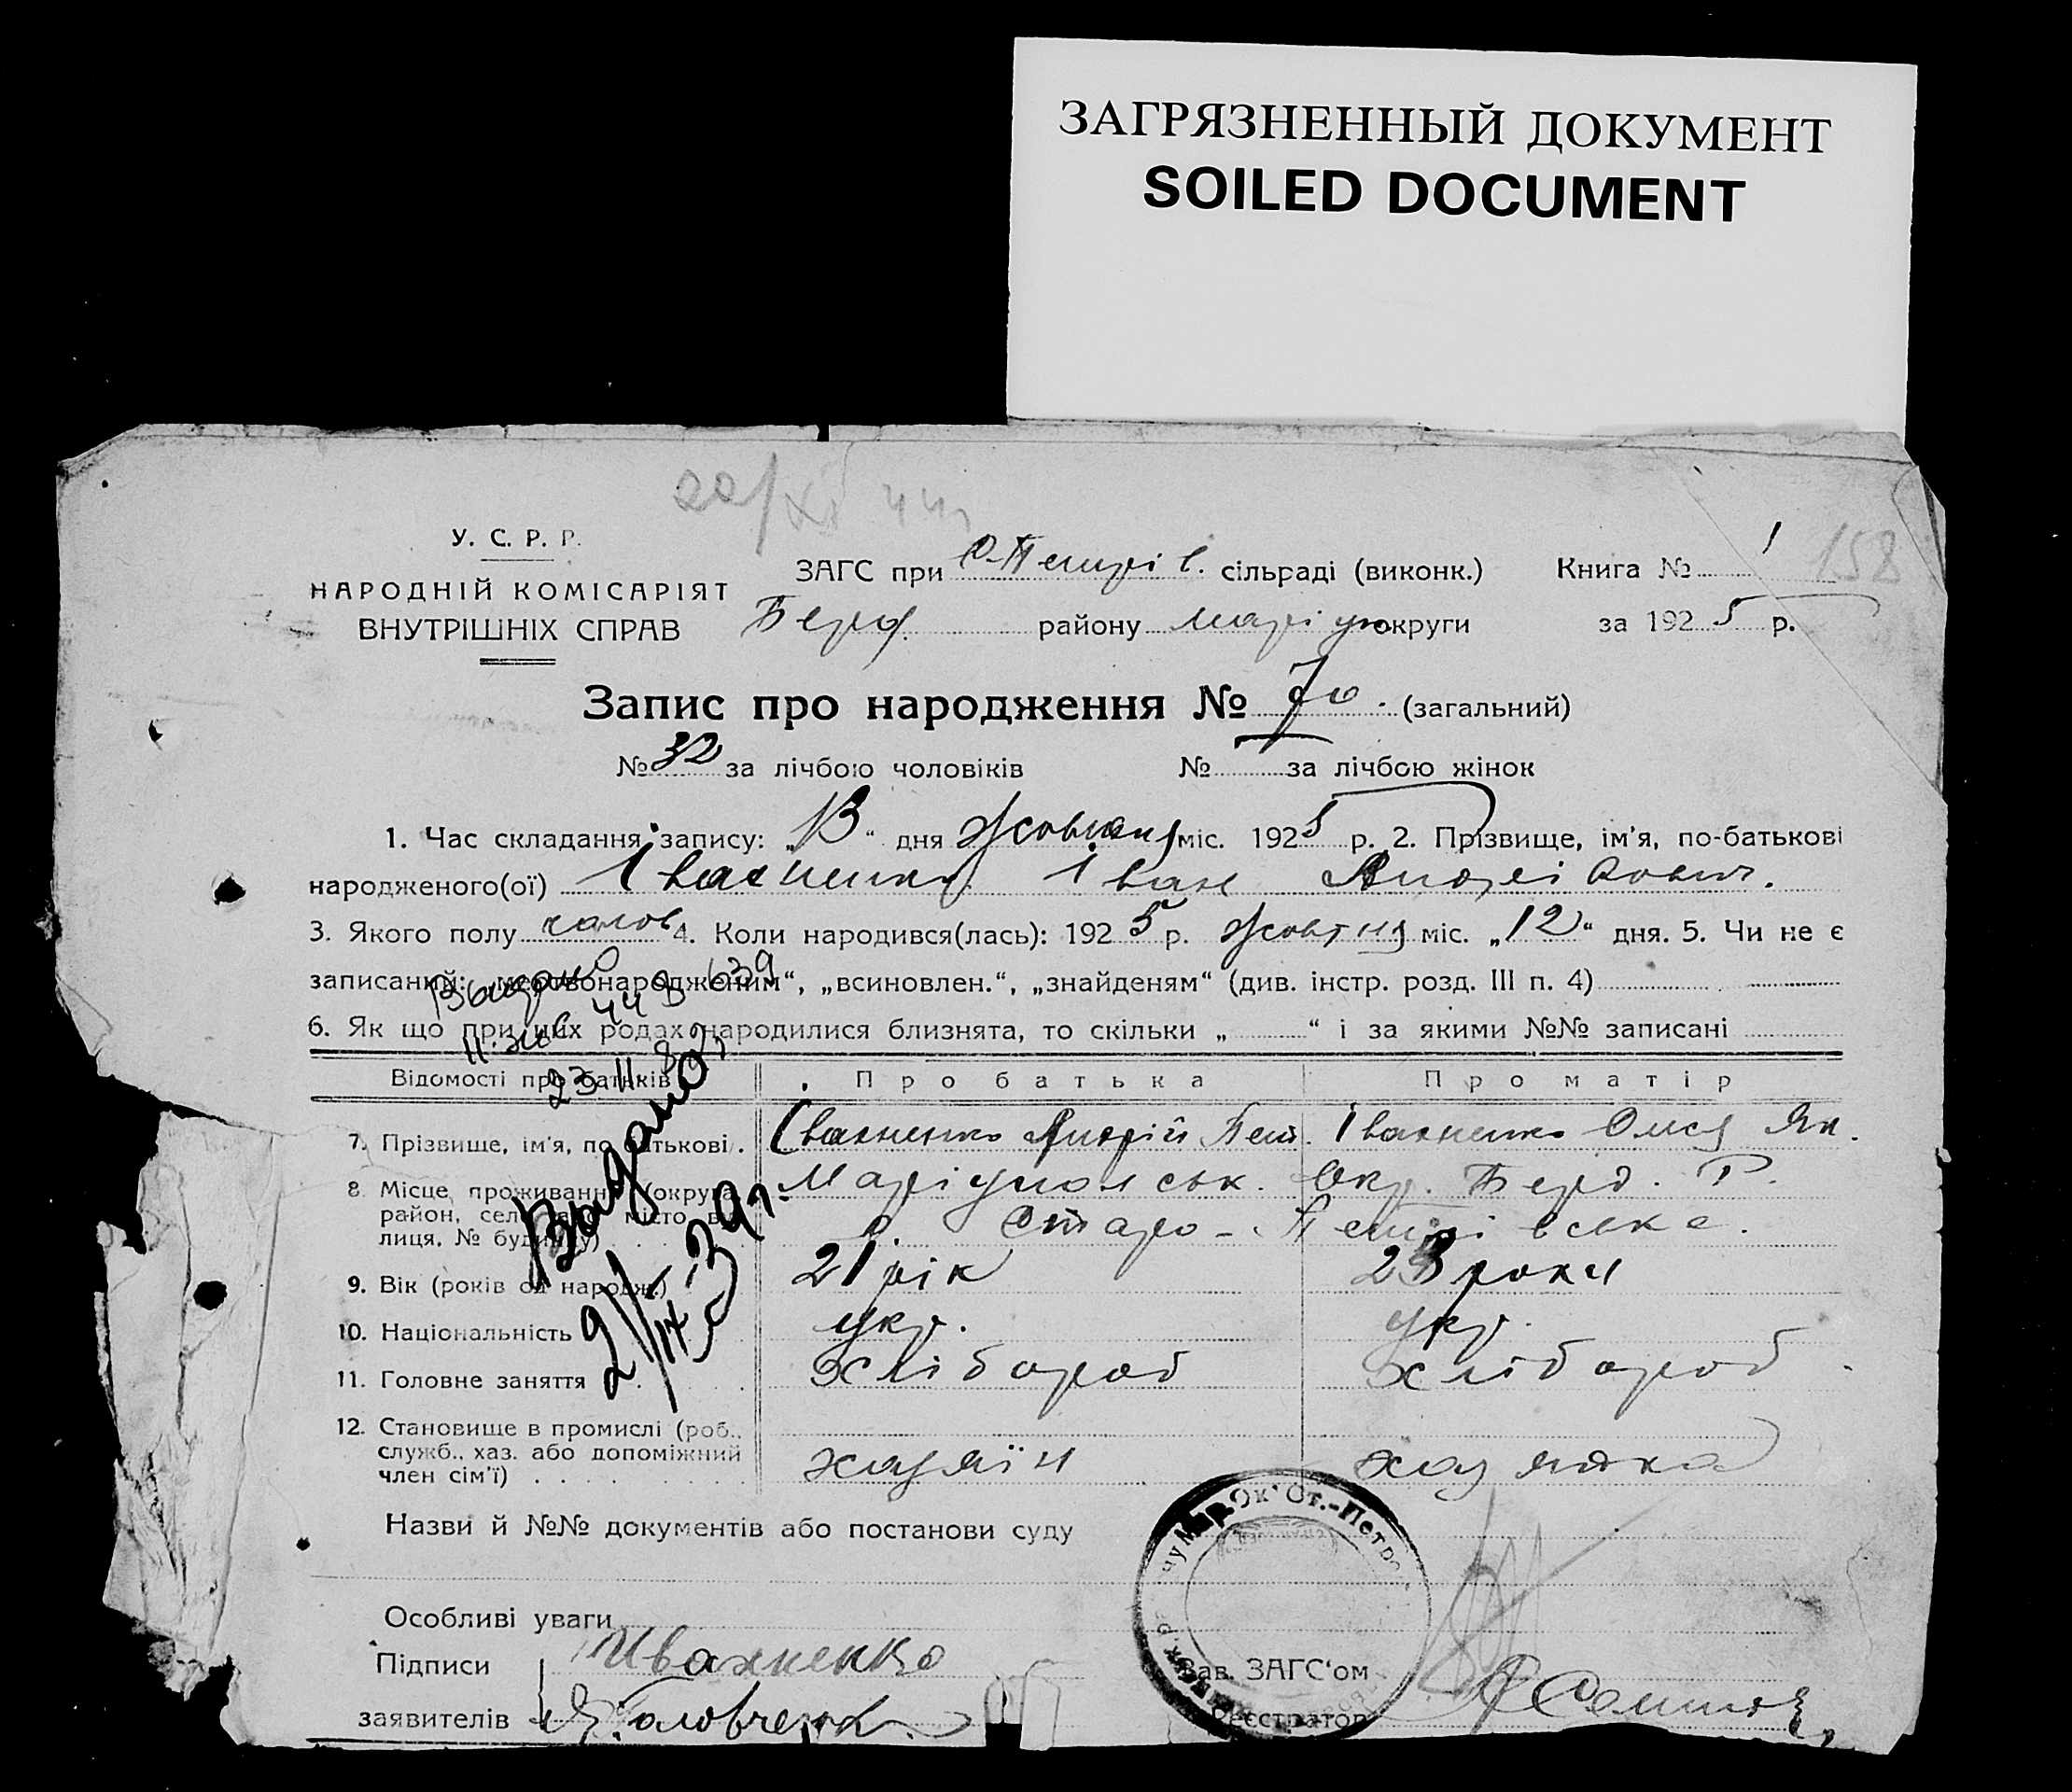 ЗАГРЯЗНЕННЫЙ ДОКУМЕНТ
SOILED DOCUMENT
158
У. С. Р. Р.
НАРОДНІЙ КОМІСАРІЯТ
ВНУТРІШНІХ СПРАВ
ЗАГС при С-Петрів. сільраді (виконк.) Книга № 1
Берд. району Маріуп. округи за 1925 р.
Запис про народження № 70. (загальний)
№ 32 за лічбою чоловіків № за лічбою жінок
1. Час складання запису: „13“ дня жовтня міс. 1925 р. 2. Прізвище, ім'я, по-батькові
народженого(ої) Івахненко Іван Андрійович.
3. Якого полу чолов 4. Коли народився(лась): 1925 р. жовтня міс. „12“ дня. 5. Чи не є
записаний: „мертвонародженим“, „всиновлен.“, „знайденям“ (див. інстр. розд. III п. 4)
6. Як що при цих родах народилися близнята, то скільки „ “ і за якими №№ записані
Відомості про батьків Про батька Про матір
7. Прізвище, ім'я, по батькові. Івахненко Андрій Пет. Івахненко Олися Як.
8. Місце проживання (округа, район, село або місто, вулиця, № будинку) Маріупольськ. Окр. Берд. Р.
с. Старо-Петрівське.
9. Вік (років од народж.) 21 рік 23 роки
10. Національність укр. укр.
11. Головне заняття хлібороб хлібороб
12. Становище в промислі (роб., служб., хаз. або допоміжний член сім'ї) хазяїн хазяйка
Выдано
23.II
Видано
21/IX-39г.
Назви й №№ документів або постанови суду
Особливі уваги
Підписи заявителів Ивахненко
Головченко
Зав. ЗАГС'ом
Реєстратор
Мар. Ок. Ст.-Петро